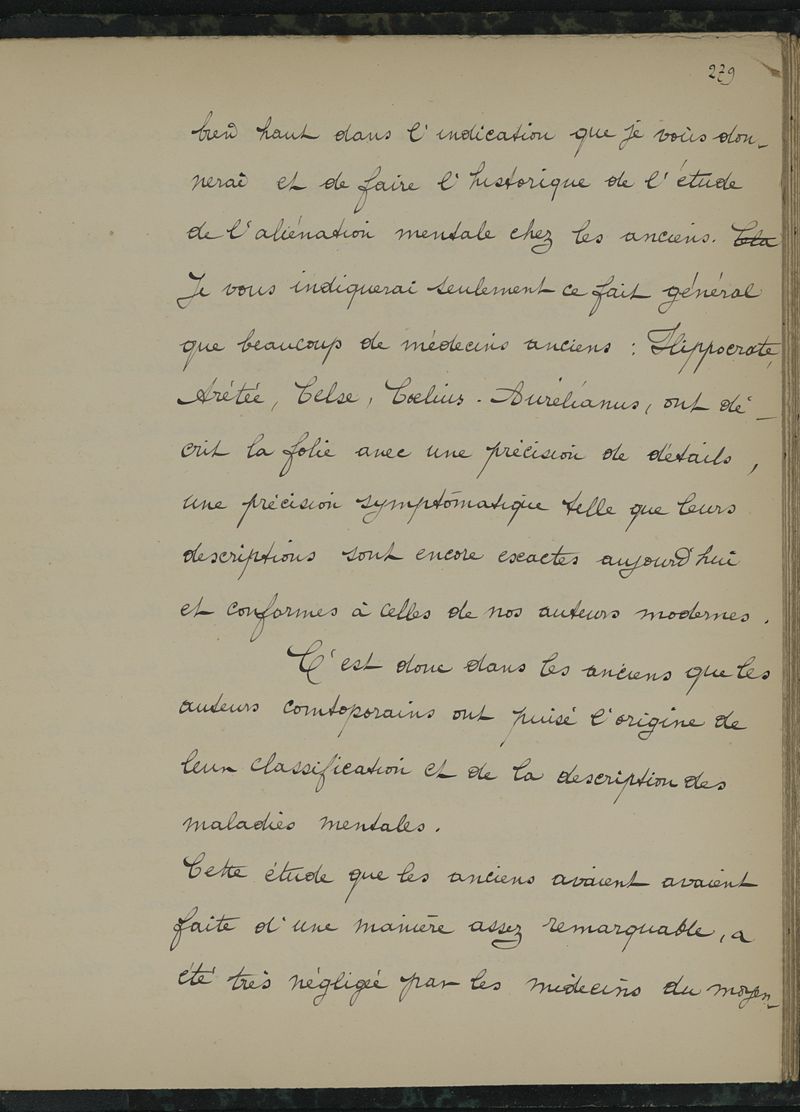 279
bien haut dans l'indication que je vous don-
nerai et de faire l'historique de l'étude
de l'aliénation mentale chez les anciens. Cela
Je vous indiquerai seulement ce fait général
que beaucoup de médecins anciens : Hippocrate,
Arétée, Celse, Coelius-Aurélianus, ont dé-
crit la folie avec une précision de détails,
une précision symptômatique telle que leurs
descriptions sont encore exactes aujourd'hui
et conformes à celles de nos auteurs modernes.
C'est donc dans les anciens que les
auteurs comtoporains ont puisé l'origine de
leur classification et de la description des
maladies mentales.
Cette étude que les anciens avaient avaient
faite d'une manière assez remarquable, a
été très négligée par les médecins du moyen-